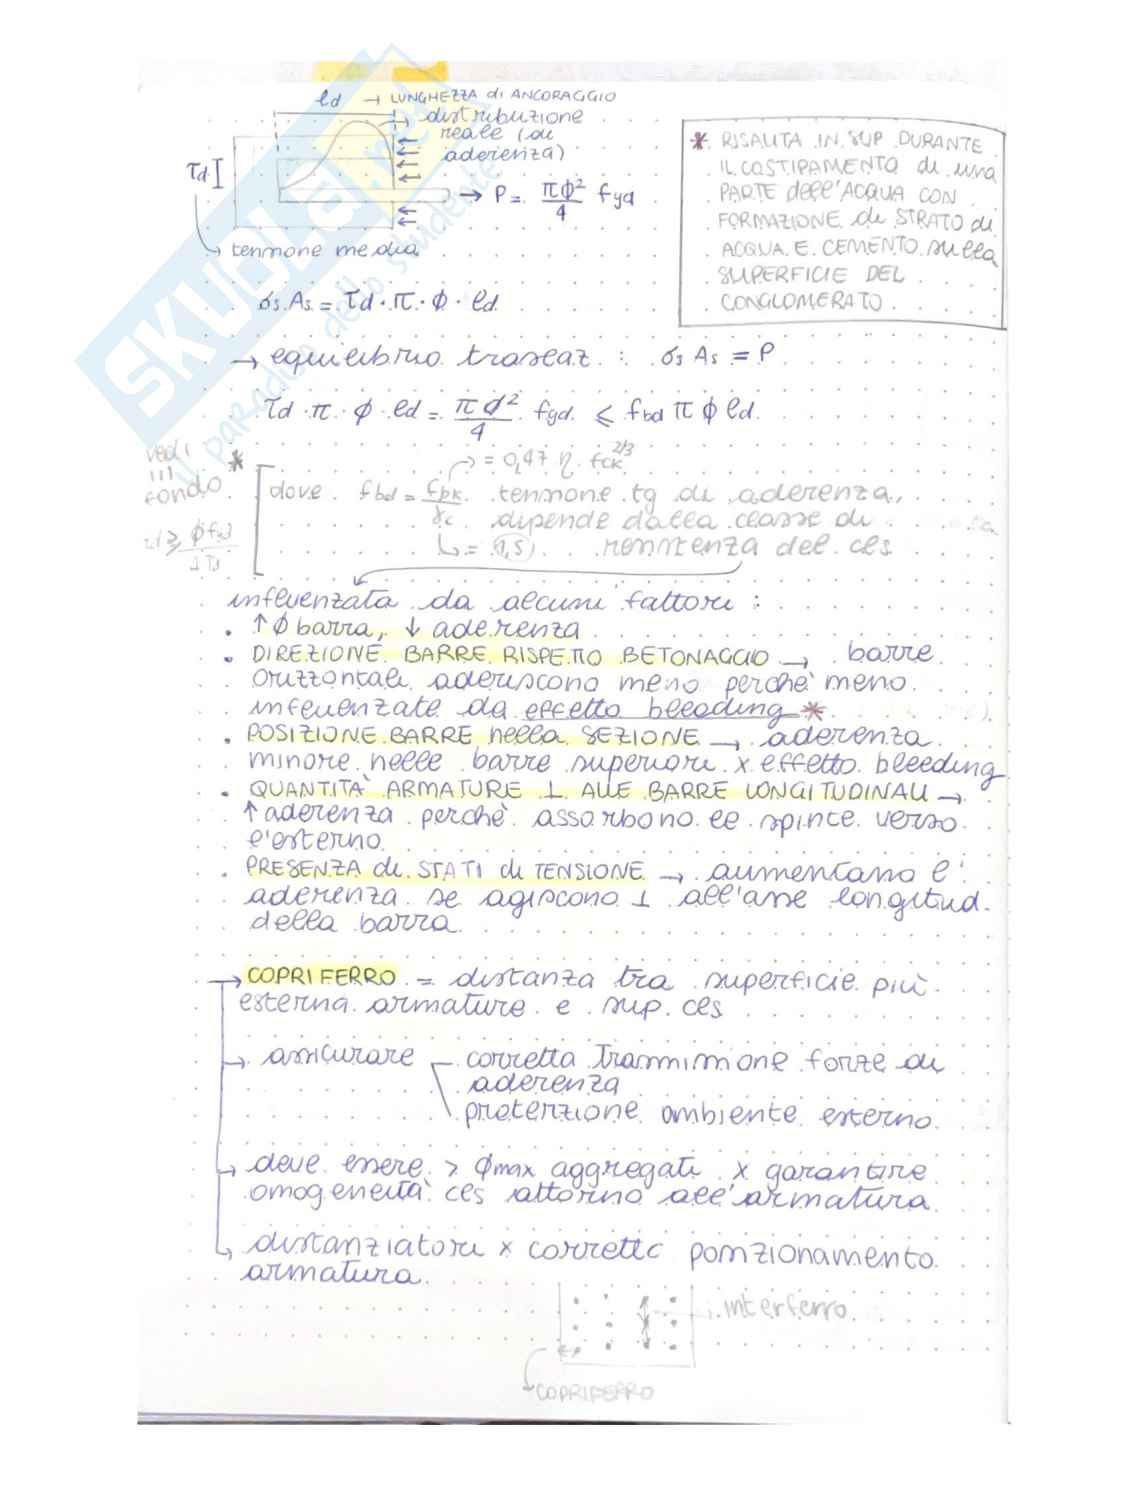 ld → LUNGHEZZA di ANCORAGGIO
distribuzione
reale (di
aderenza)
τd
→ P = πϕ²/4 fyd
→ tensione media
* RISALITA IN SUP DURANTE
IL COSTIPAMENTO di una
PARTE dell'ACQUA CON
FORMAZIONE di STRATO di
ACQUA E CEMENTO sulla
SUPERFICIE DEL
CONGLOMERATO
σs As = τd · π · ϕ · ld
→ equilibrio traslaz : σs As = P
τd · π · ϕ · ld = πd²/4 fyd ≤ fbd π ϕ ld
vedi
in
fondo
*
→ = 0,47 η fck^2/3
dove fbd = fbk/γc tensione tg di aderenza,
dipende dalla classe di
↳ = 1,5) resistenza del cls
ld ≥ ϕ fyd
influenzata da alcuni fattori :
• ↑ ϕ barra, ↓ aderenza
• DIREZIONE BARRE RISPETTO BETONAGGIO → barre
orizzontali aderiscono meno perchè meno
influenzate da effetto bleeding *
• POSIZIONE BARRE nella SEZIONE → aderenza
minore nelle barre superiori x effetto bleeding
• QUANTITÀ ARMATURE ⊥ ALLE BARRE LONGITUDINALI →
↑ aderenza perchè assorbono le spinte verso
l'esterno
• PRESENZA di STATI di TENSIONE → aumentano l'
aderenza se agiscono ⊥ all'asse longitud.
della barra
→ COPRIFERRO = distanza tra superficie più
esterna armature e sup. cls
→ assicurare corretta trasmissione forze di
aderenza
protezione ambiente esterno
→ deve essere > ϕmax aggregati x garantire
omogeneità cls attorno all'armatura
↳ distanziatori x corretto posizionamento
armatura
interferro
COPRIFERRO
SKUOLA.net
il paradiso dello studente